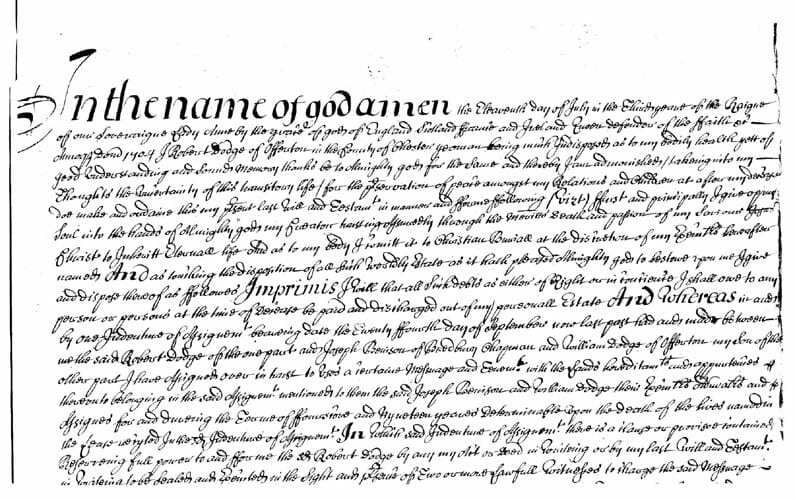 In the name of god amen the Eleaventh day of July in the Third yeare of the Raigne
of our Soveraigne Lady Anne by the grace of god of England Scotland ffrance and Ireland Queen defender of the ffaith &c
Annoq Domi 1704 I Robert Dodge of Offerton in the County of Chester yeoman being much Indisposed as to my bodily health yett of
good Understanding and Sound Memory thanks be to Almighty god for the Same and thereby I am admonished takeing into my
Thoughts the Uncertainty of this transitory life for the pservation of peace amongst my Relations and Children at & after my decease
doe make and ordaine this my psent Last Will and Testamt in manner and fforme following (vizt) ffirst and principally I give up my
Soul into the hands of Almighty god my Creator trusting Assuredly through the Merites Death and passion of my Saviour Jesus
Christ to Inheritt Eternall life And as to my body I comitt it to Christian Buriall at the discretion of my Executrs hereafter
named And as touching the disposition of all such Worldly Estate as it hath pleased Almighty god to bestow upon me I give
and dispose thereof as followes Imprimis I will that all such debts as either of Right or in conscience I shall owe to any
person or persons at the time of decease be paid and discharged out of my personall Estate And Whereas in and
by one Indenture of Assignemt beareing date the Twenty ffourth day of September now last past had and made between
me the said Robert Dodge of the one part and Joseph Benison of Bredbury Chapman and William Dodge of Offerton my Son of the
other part I have Assigned over in trust to Uses a certaine Messuage and Tenemt with the Lands hereditamts and appurtences
thereto belonging in the said Assignemt mentioned to them the said Joseph Benison and William Dodge their Executrs Admrs and
Assignes for and dureing the Terme of ffourscore and Nyneteen yeares Determinable upon the death of the lives named in
the Lease recited In the sd Indenture of Assignemt In Which said Indenture of Assignemt there is a clause or proviso contained
Reserveing full power to and ffor me the sd Robert Dodge by any my Act or deed in writeing or by my last Will and Testamt
in writeing to be sealed and Executed in the Sight and psence of Two or more Lawfull witnesses to Charge the said Messuage